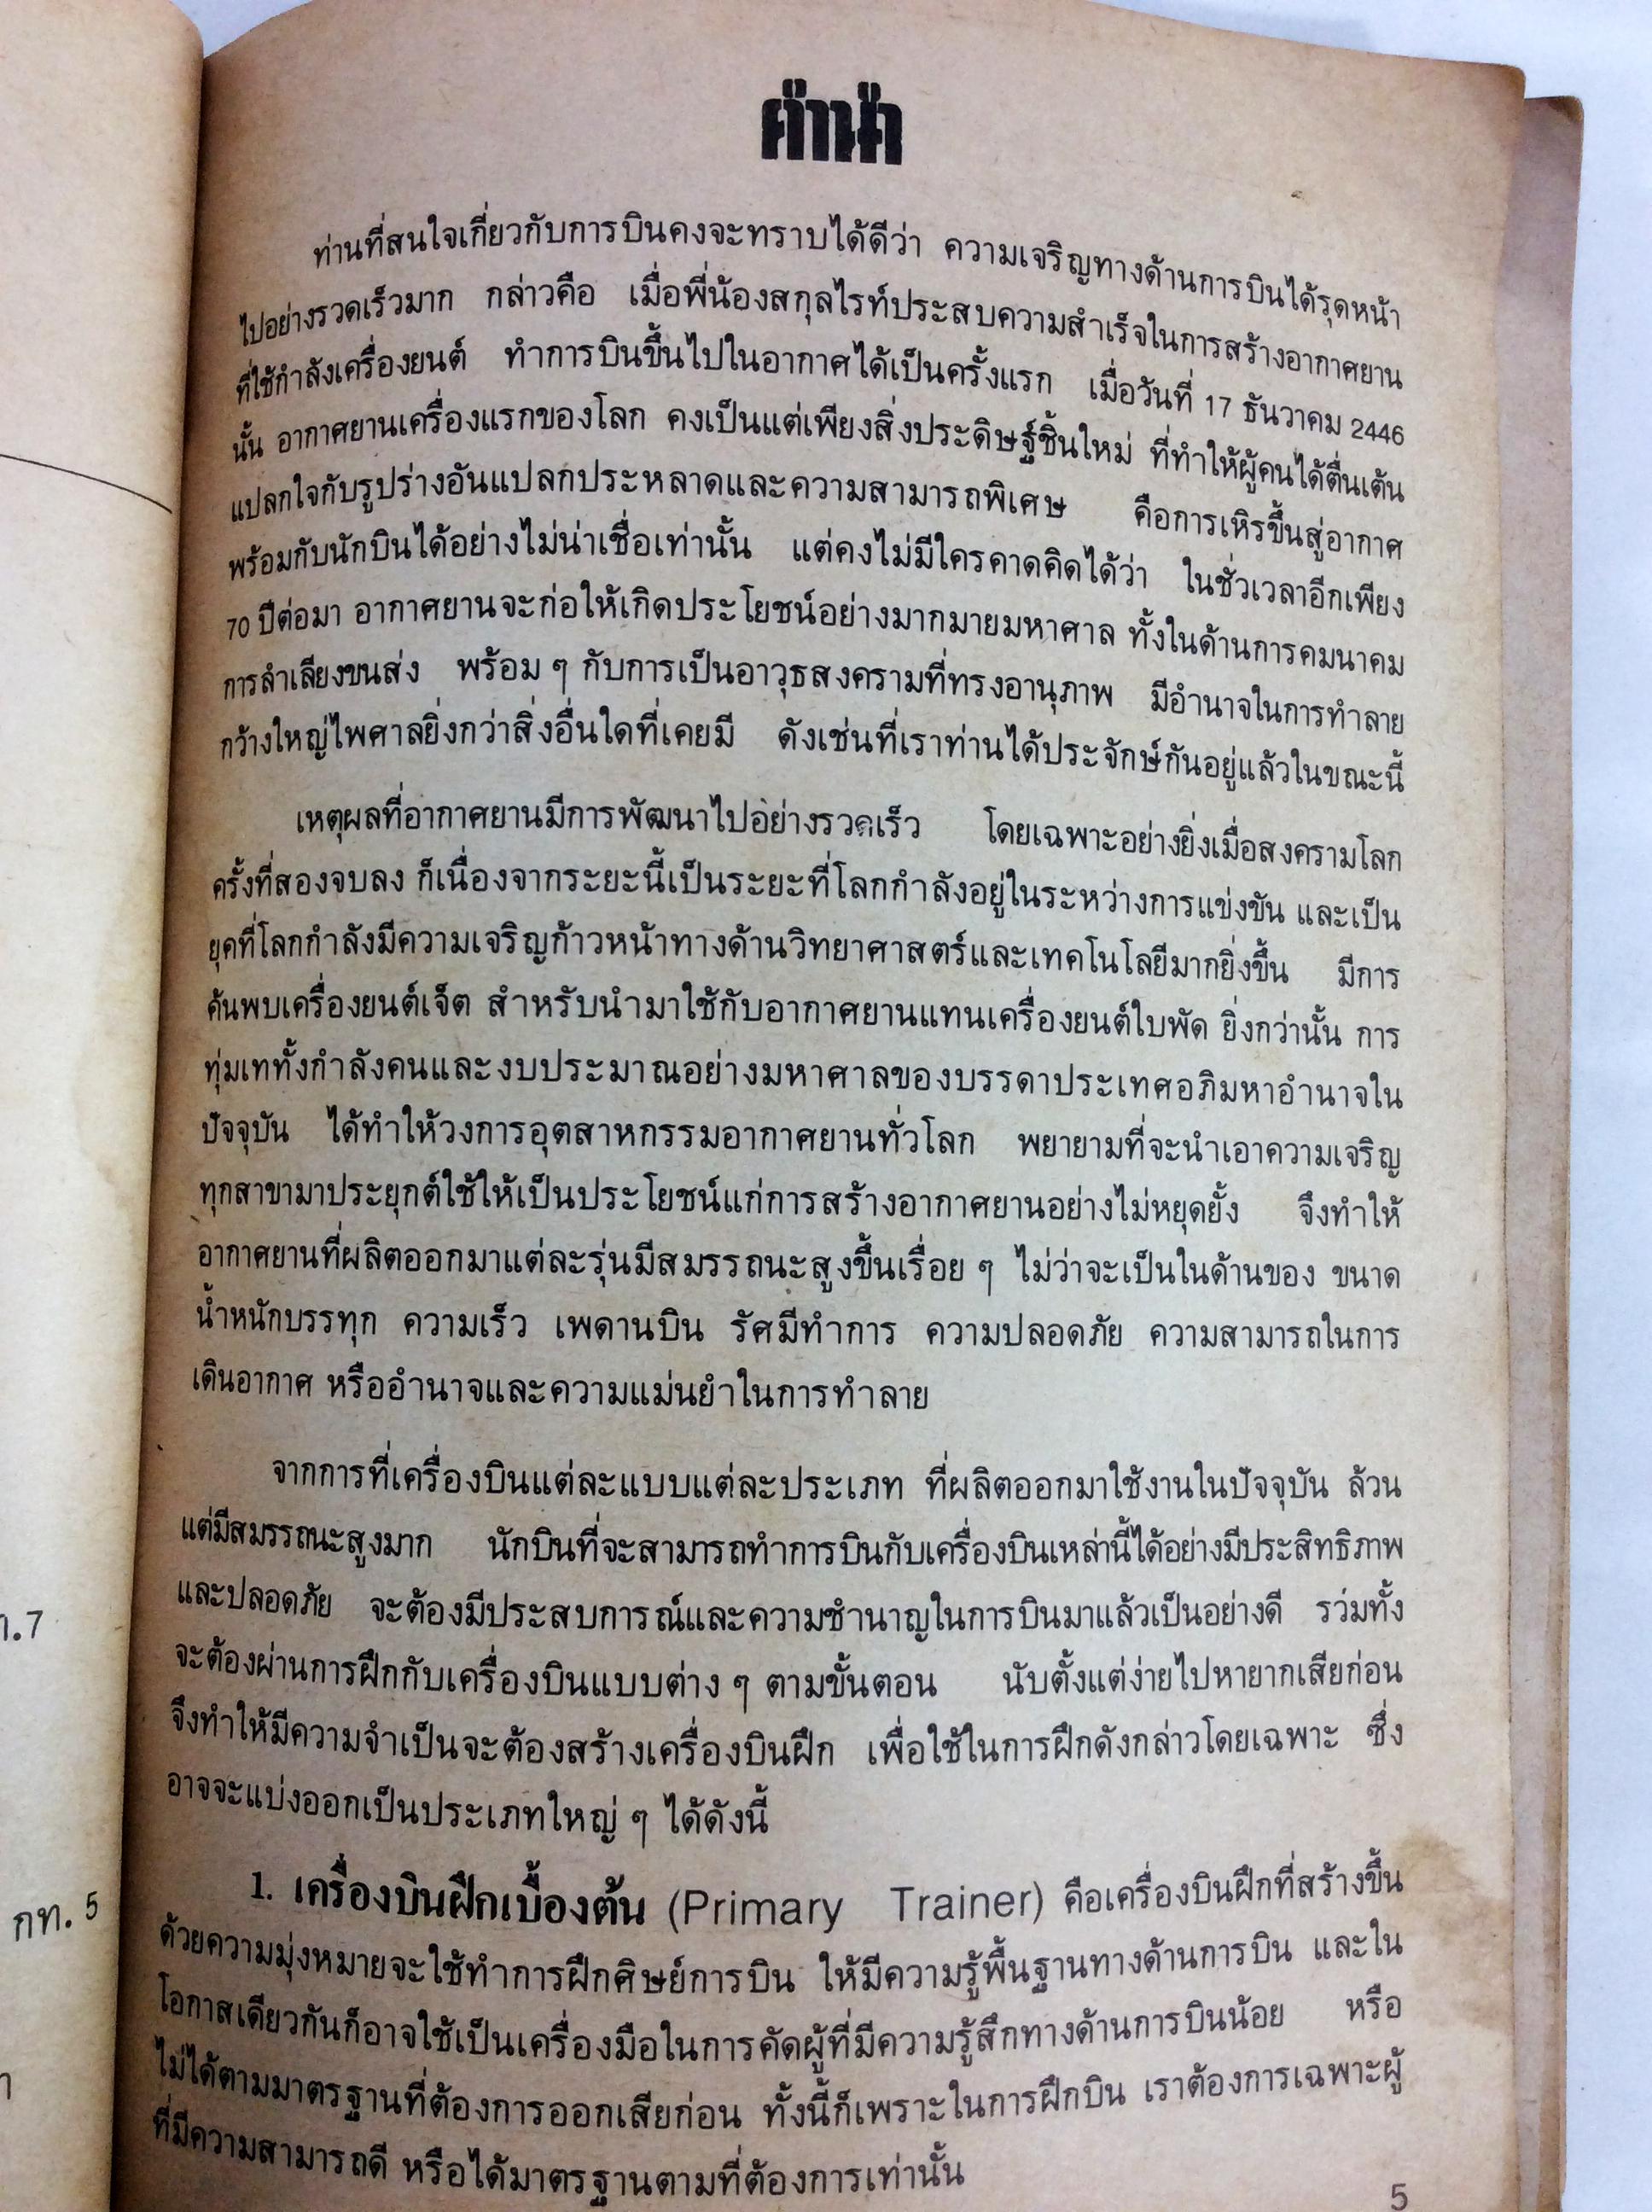 คำนำ
ท่านที่สนใจเกี่ยวกับการบินคงจะทราบได้ดีว่า ความเจริญทางด้านการบินได้รุดหน้า
ไปอย่างรวดเร็วมาก กล่าวคือ เมื่อพี่น้องสกุลไรท์ประสบความสำเร็จในการสร้างอากาศยาน
ที่ใช้กำลังเครื่องยนต์ ทำการบินขึ้นไปในอากาศได้เป็นครั้งแรก เมื่อวันที่ 17 ธันวาคม 2446
นั้น อากาศยานเครื่องแรกของโลก คงเป็นแต่เพียงสิ่งประดิษฐ์ชิ้นใหม่ ที่ทำให้ผู้คนได้ตื่นเต้น
แปลกใจกับรูปร่างอันแปลกประหลาดและความสามารถพิเศษ คือการเหิรขึ้นสู่อากาศ
พร้อมกับนักบินได้อย่างไม่น่าเชื่อเท่านั้น แต่คงไม่มีใครคาดคิดได้ว่า ในชั่วเวลาอีกเพียง
70 ปีต่อมา อากาศยานจะก่อให้เกิดประโยชน์อย่างมากมายมหาศาล ทั้งในด้านการคมนาคม
การลำเลียงขนส่ง พร้อม ๆ กับการเป็นอาวุธสงครามที่ทรงอานุภาพ มีอำนาจในการทำลาย
กว้างใหญ่ไพศาลยิ่งกว่าสิ่งอื่นใดที่เคยมี ดังเช่นที่เราท่านได้ประจักษ์กันอยู่แล้วในขณะนี้
เหตุผลที่อากาศยานมีการพัฒนาไปอย่างรวดเร็ว โดยเฉพาะอย่างยิ่งเมื่อสงครามโลก
ครั้งที่สองจบลง ก็เนื่องจากระยะนี้เป็นระยะที่โลกกำลังอยู่ในระหว่างการแข่งขัน และเป็น
ยุคที่โลกกำลังมีความเจริญก้าวหน้าทางด้านวิทยาศาสตร์และเทคโนโลยีมากยิ่งขึ้น มีการ
ค้นพบเครื่องยนต์เจ็ต สำหรับนำมาใช้กับอากาศยานแทนเครื่องยนต์ใบพัด ยิ่งกว่านั้น การ
ทุ่มเททั้งกำลังคนและงบประมาณอย่างมหาศาลของบรรดาประเทศอภิมหาอำนาจใน
ปัจจุบัน ได้ทำให้วงการอุตสาหกรรมอากาศยานทั่วโลก พยายามที่จะนำเอาความเจริญ
ทุกสาขามาประยุกต์ใช้ให้เป็นประโยชน์แก่การสร้างอากาศยานอย่างไม่หยุดยั้ง จึงทำให้
อากาศยานที่ผลิตออกมาแต่ละรุ่นมีสมรรถนะสูงขึ้นเรื่อย ๆ ไม่ว่าจะเป็นในด้านของ ขนาด
น้ำหนักบรรทุก ความเร็ว เพดานบิน รัศมีทำการ ความปลอดภัย ความสามารถในการ
เดินอากาศ หรืออำนาจและความแม่นยำในการทำลาย
จากการที่เครื่องบินแต่ละแบบแต่ละประเภท ที่ผลิตออกมาใช้งานในปัจจุบัน ล้วน
แต่มีสมรรถนะสูงมาก นักบินที่จะสามารถทำการบินกับเครื่องบินเหล่านี้ได้อย่างมีประสิทธิภาพ
และปลอดภัย จะต้องมีประสบการณ์และความชำนาญในการบินมาแล้วเป็นอย่างดี รวมทั้ง
จะต้องผ่านการฝึกกับเครื่องบินแบบต่าง ๆ ตามขั้นตอน นับตั้งแต่ง่ายไปหายากเสียก่อน
จึงทำให้มีความจำเป็นจะต้องสร้างเครื่องบินฝึก เพื่อใช้ในการฝึกดังกล่าวโดยเฉพาะ ซึ่ง
อาจจะแบ่งออกเป็นประเภทใหญ่ ๆ ได้ดังนี้
1. เครื่องบินฝึกเบื้องต้น (Primary Trainer) คือเครื่องบินฝึกที่สร้างขึ้น
ด้วยความมุ่งหมายจะใช้ทำการฝึกศิษย์การบิน ให้มีความรู้พื้นฐานทางด้านการบิน และใน
โอกาสเดียวกันก็อาจใช้เป็นเครื่องมือในการคัดผู้ที่มีความรู้สึกทางด้านการบินน้อย หรือ
ไม่ได้ตามมาตรฐานที่ต้องการออกเสียก่อน ทั้งนี้ก็เพราะในการฝึกบิน เราต้องการเฉพาะผู้
ที่มีความสามารถดี หรือได้มาตรฐานตามที่ต้องการเท่านั้น
5
.7
กท. 5